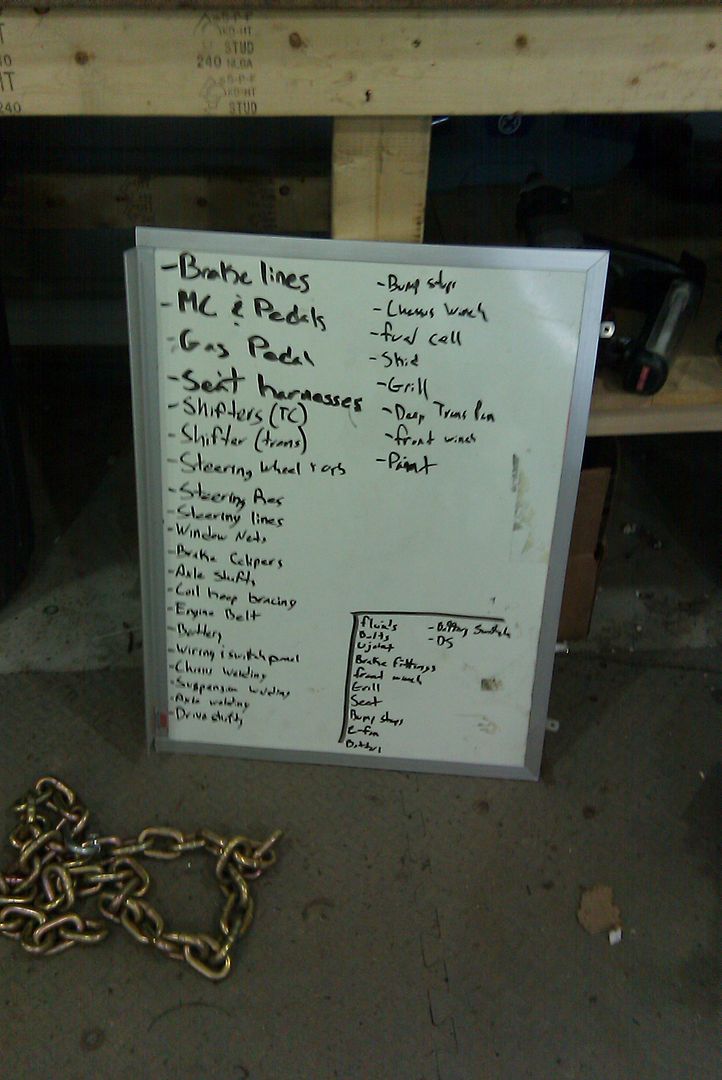 S-P-F
KD-HT
STUD
240 NLGA
S-P-F
KD-HT
STUD
HT
240
-Brake lines
-MC & Pedals
-Gas Pedal
-Seat harnesses
-Shifters (TC)
-Shifter (trans)
-Steering wheel & orb
-Steering Res
-Steering lines
-Window Nets
-Brake Calipers
-Axle shafts
-Coil hoop bracing
-Engine Belt
-Battery
-Wiring & switch panel
-Chassis Welding
-Suspension welding
-Axle welding
-Drive shafts
-Bump stops
-Chassis Winch
-fuel cell
-Skid
-Grill
-Deep Trans Pan
-front winch
-Paint
fluids
Bolts
Ujoint
Brake fittings
front winch
Grill
Seat
Bump stops
E-fan
Battery
-Battery Switch
-DS